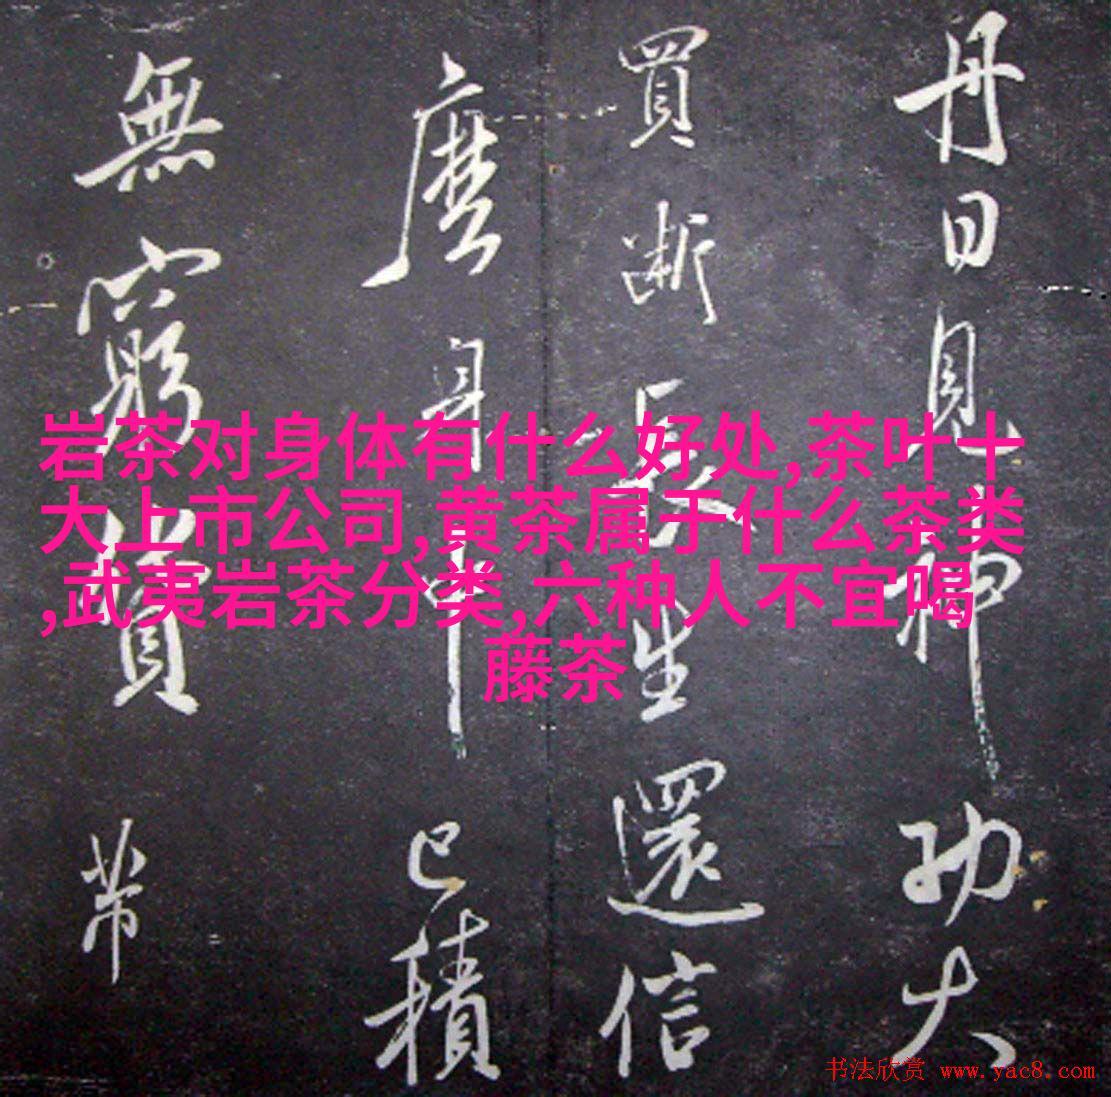 丹日見神功大
買斷長生還信
麼身中已積
無窮貨帶
岩茶对身体有什么好处,茶叶十
大上市公司,黄茶属于什么茶类
,武夷岩茶分类,六种人不宜喝
藤茶
书法欣赏 www.yac8.com